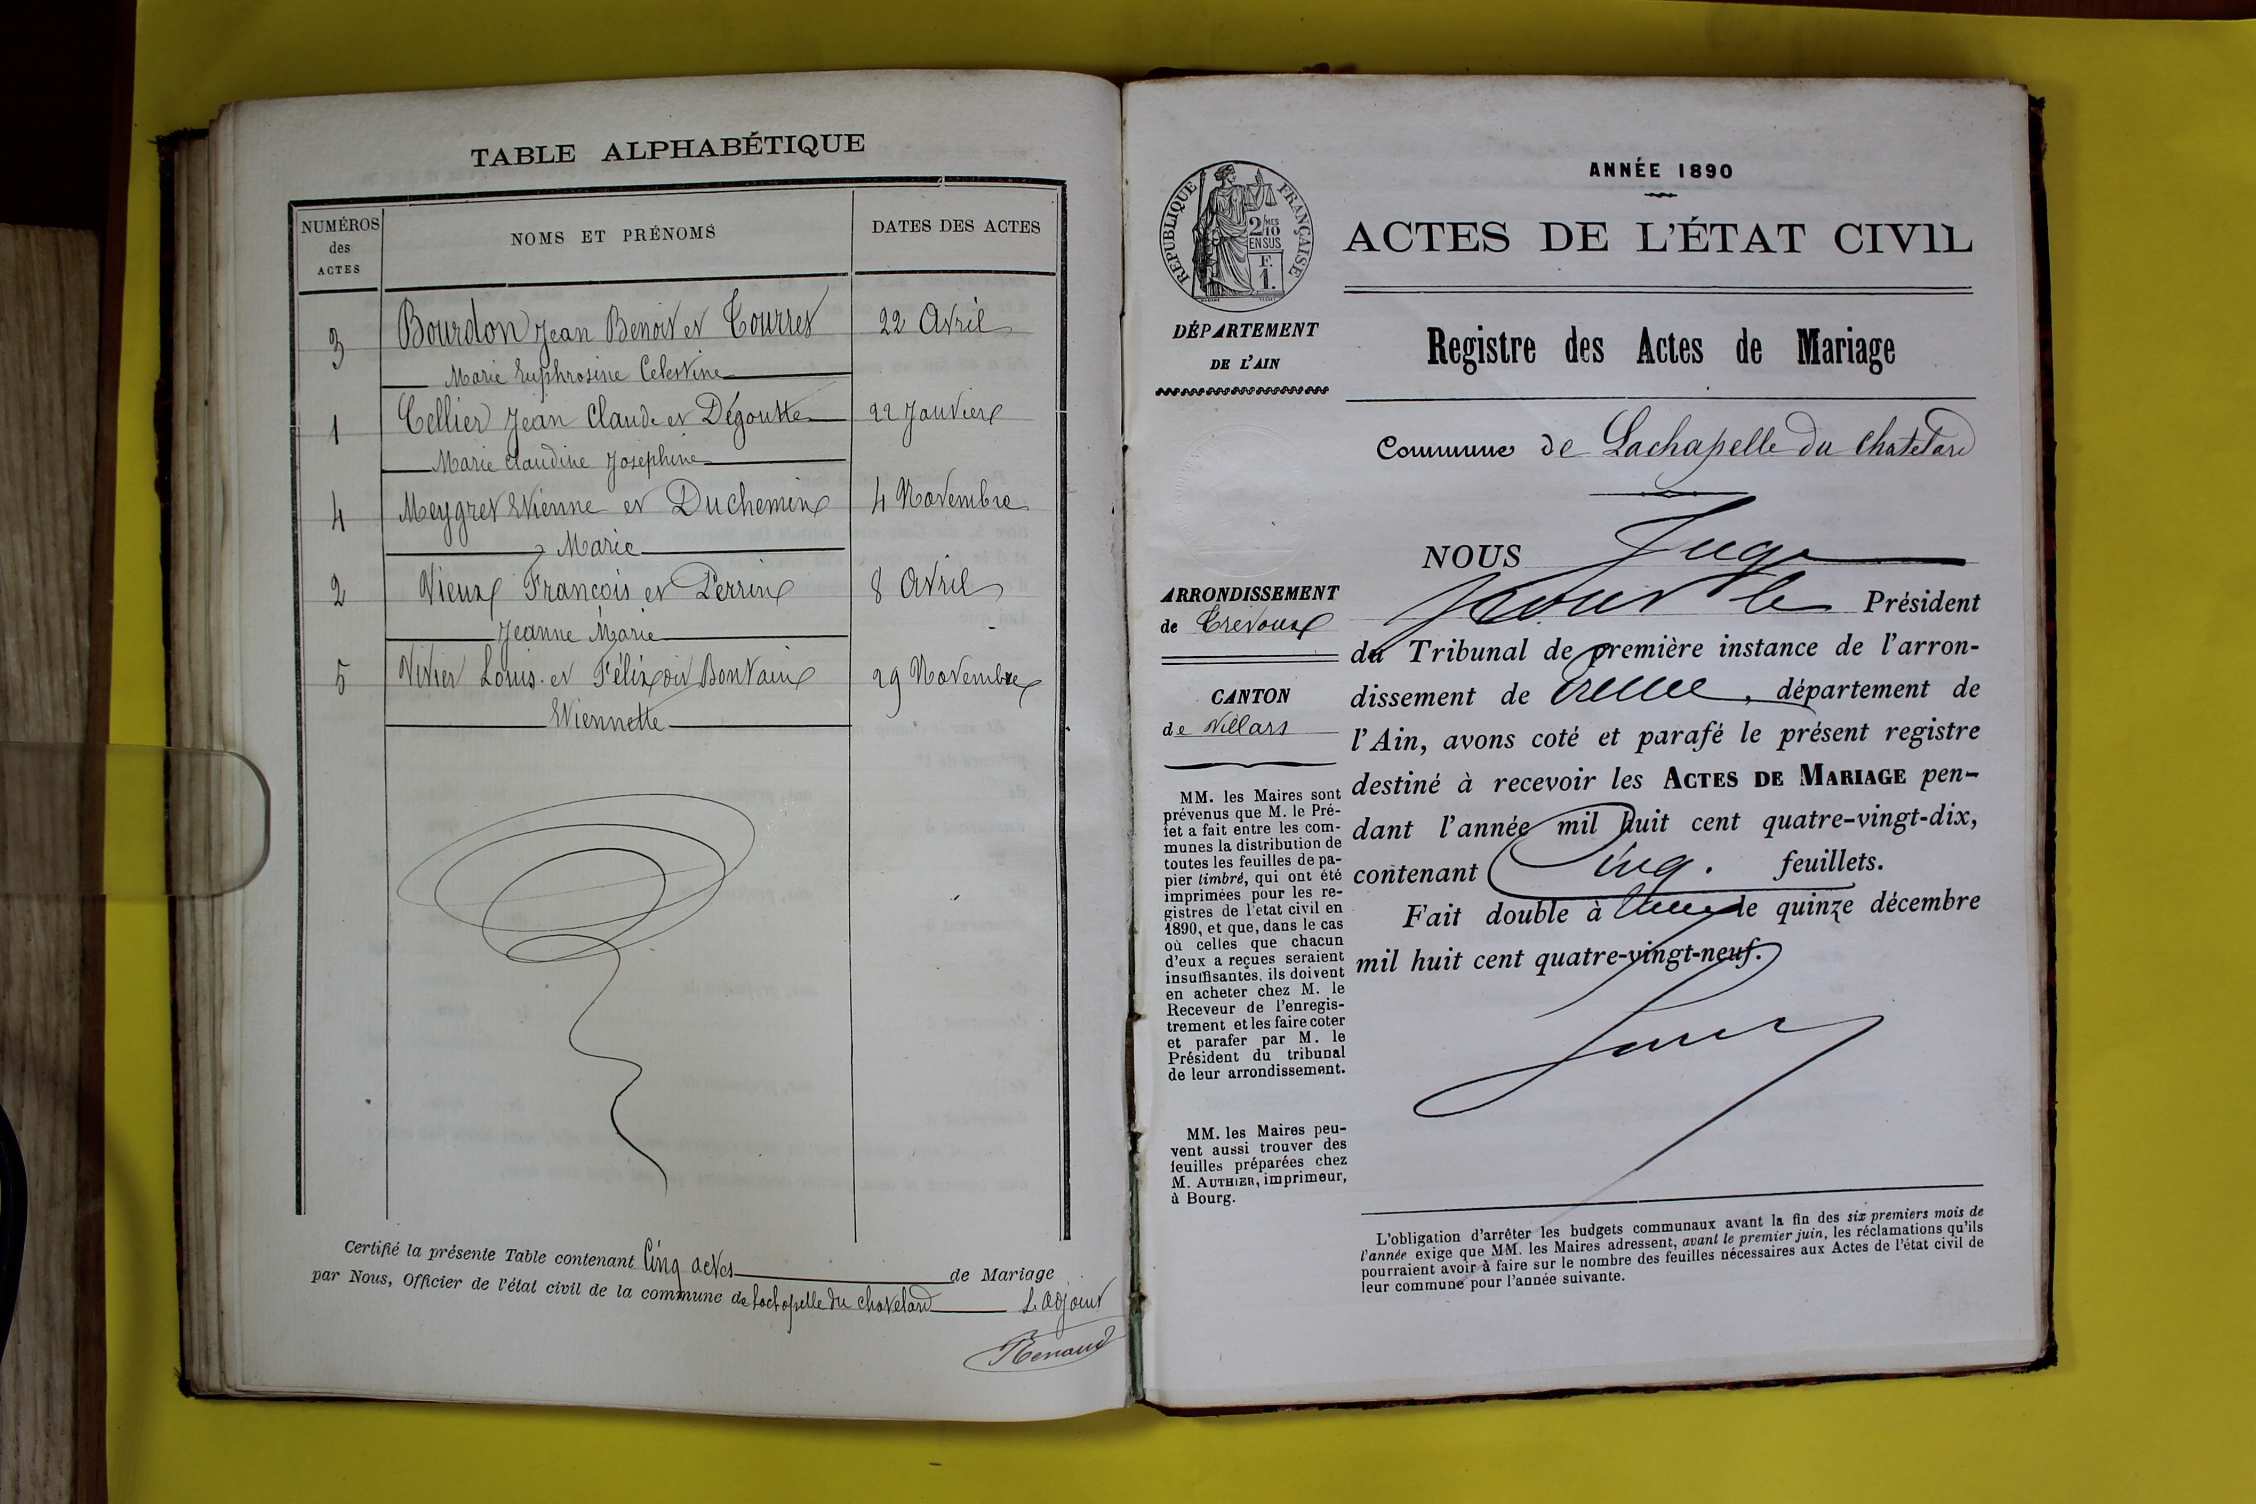 TABLE ALPHABÉTIQUE
NUMÉROS des ACTES
NOMS ET PRÉNOMS
DATES DES ACTES
3 Bourdon Jean Benoit et Tourret 22 Avril
Marie Euphrosine Celestine
1 Cellier Jean Claude et Dégoutte 22 Janvier
Marie Claudine Joséphine
4 Meygret Etienne et Duchemin 4 Novembre
Marie
2 Vieux François et Perrin 8 Avril
Jeanne Marie
5 Vivier Louis et Félix dit Bontain 29 Novembre
Etiennette
Certifié la présente Table contenant Cinq actes de Mariage
par Nous, Officier de l'état civil de la commune de Lachapelle du chatelard L'adjoint
Renaud
ANNÉE 1890
RÉPUBLIQUE FRANÇAISE
2/10 MES EN SUS
F. 1.
ACTES DE L'ÉTAT CIVIL
DÉPARTEMENT
DE L'AIN
Registre des Actes de Mariage
Commune de Lachapelle du Chatelard
ARRONDISSEMENT
de Trévoux
CANTON
de Villars
MM. les Maires sont
prévenus que M. le Pré-
fet a fait entre les com-
munes la distribution de
toutes les feuilles de pa-
pier timbré, qui ont été
imprimées pour les re-
gistres de l'état civil en
1890, et que, dans le cas
où celles que chacun
d'eux a reçues seraient
insuffisantes, ils doivent
en acheter chez M. le
Receveur de l'enregis-
trement et les faire coter
et parafer par M. le
Président du tribunal
de leur arrondissement.
MM. les Maires peu-
vent aussi trouver des
feuilles préparées chez
M. AUTHIER, imprimeur,
à Bourg.
NOUS Juge
pour le Président
du Tribunal de première instance de l'arron-
dissement de , département de
l'Ain, avons coté et parafé le présent registre
destiné à recevoir les ACTES DE MARIAGE pen-
dant l'année mil huit cent quatre-vingt-dix,
contenant Cinq. feuillets.
Fait double à le quinze décembre
mil huit cent quatre-vingt-neuf.
L'obligation d'arrêter les budgets communaux avant la fin des six premiers mois de
l'année exige que MM. les Maires adressent, avant le premier juin, les réclamations qu'ils
pourraient avoir à faire sur le nombre des feuilles nécessaires aux Actes de l'état civil de
leur commune pour l'année suivante.